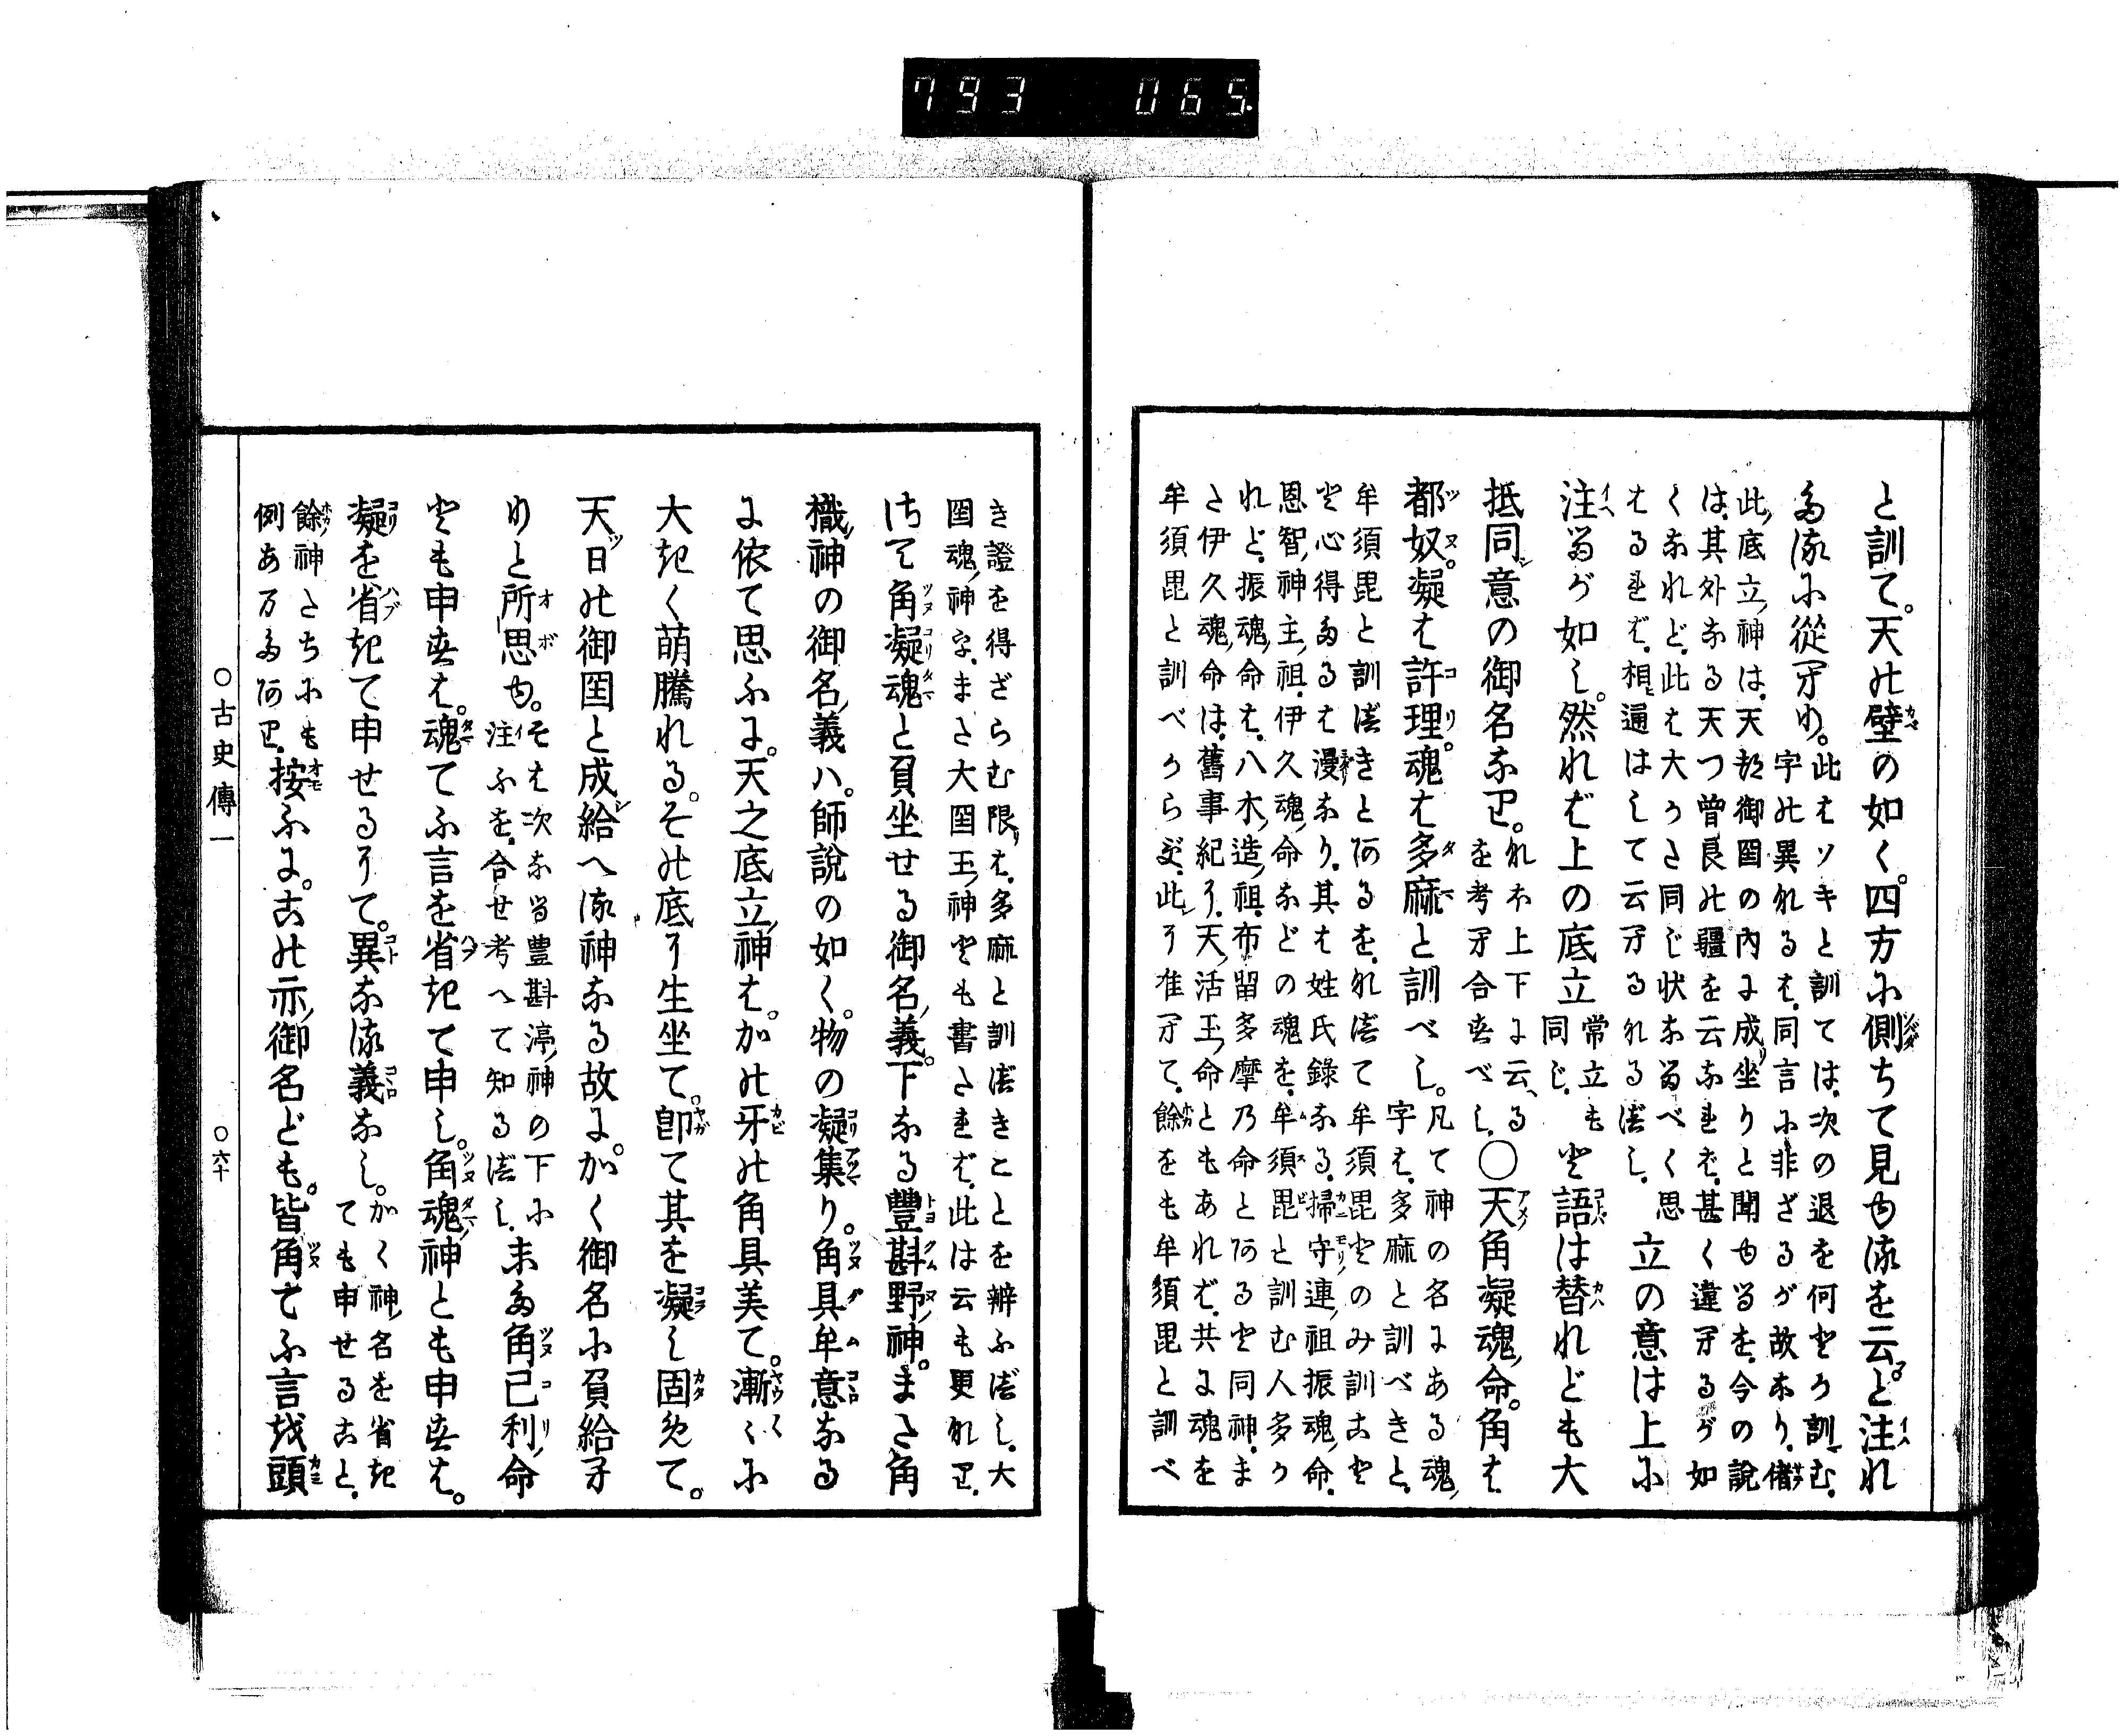 793 065.
と訓て。天の壁の如く。四方に側ちて見ゆるを云。と注れ
たるに從へり。此はソキと訓ては、次の退を何とか訓む。
字の異れるは、同言に非ざるが故なり。偖
此底立神は、天都御国の内に成坐りと聞ゆるを、今の説
は、其外なる天つ曾良の疆を云なれば、甚く違へるが如
くなれど、此は大かた同じ状なるべく思
はるれば、相通はして云へるなるべし。立の意は上に
注るが如し。然れば上の底立常立も
同じ。と語は替れども大
抵同意の御名なり。なほ上下に云る
を考へ合すべし。〇天角凝魂命。角は
都奴。凝は許理。魂は多麻と訓べし。凡て神の名にある魂
字は、多麻と訓べきと、
牟須毘と訓べきとあるを、なべて牟須毘とのみ訓ことゝ
心得たるは漫なり。其は姓氏錄なる、掃守連祖振魂命、
恩智神主祖、伊久魂命などの魂を、牟須毘と訓む人多か
れど、振魂命は、八木造祖、布留多摩乃命とあると同神、ま
た伊久魂命は、舊事紀に、天活玉命ともあれば、共に魂を
牟須毘と訓べからず、此に准へて、餘をも牟須毘と訓べ
き證を得ざらむ限は、多麻と訓べきことを辨ふべし。大
国魂神字、また大国玉神とも書たれば、此は云も更なり。
さて角凝魂と負坐せる御名義。下なる豐斟野神。また角
樴神の御名義ハ。師說の如く。物の凝集り。角具牟意なる
に依て思ふに。天之底立神は。かの牙の角具美て。漸〻に
大きく萌騰れる。その底に生坐て。卽て其を凝し固めて。
天日の御国と成給へる神なる故に。かく御名に負給へ
りと所思ゆ。そは次なる豊斟渟神の下に
注ふを、合せ考へて知るべし。また角己利命
とも申すは。魂てふ言を省きて申し。角魂神とも申すは。
凝を省きて申せるにて。異なる義なし。かく神名を省き
ても申せること、
餘神たちにも
例あまたあり。按ふに。古の示御名ども。皆角てふ言を頭
〇古史傳一 〇六十